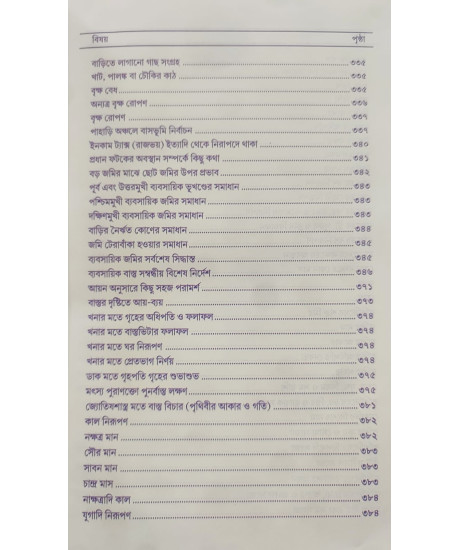 বিষয় পৃষ্ঠা
বাড়িতে লাগানো গাছ সংগ্রহ ৩৩৫
খাট, পালঙ্ক বা চৌকির কাঠ ৩৩৫
বৃক্ষ বেধ ৩৩৫
অন্যত্র বৃক্ষ রোপণ ৩৩৬
বৃক্ষ রোপণ ৩৩৭
পাহাড়ি অঞ্চলে বাসভূমি নির্বাচন ৩৩৭
ইনকাম ট্যাক্স (রাজভয়) ইত্যাদি থেকে নিরাপদে থাকা ৩৪০
প্রধান ফটকের অবস্থান সম্পর্কে কিছু কথা ৩৪১
বড় জমির মাঝে ছোট জমির উপর প্রভাব ৩৪২
পূর্ব এবং উত্তরমুখী ব্যবসায়িক ভূখণ্ডের সমাধান ৩৪৩
পশ্চিমমুখী ব্যবসায়িক জমির সমাধান ৩৪৩
দক্ষিণমুখী ব্যবসায়িক জমির সমাধান ৩৪৩
বাড়ির নৈর্ঋত কোণের সমাধান ৩৪৪
জমি টেরাবাঁকা হওয়ার সমাধান ৩৪৫
ব্যবসায়িক জমির সর্বশেষ সিদ্ধান্ত ৩৪৫
ব্যবসায়িক বাস্তু সম্বন্ধীয় বিশেষ নির্দেশ ৩৪৬
আয়ন অনুসারে কিছু সহজ পরামর্শ ৩৭১
বাস্তুর দৃষ্টিতে আয়-ব্যয় ৩৭৩
খনার মতে গৃহের অধিপতি ও ফলাফল ৩৭৪
খনার মতে বাস্তুভিটার ফলাফল ৩৭৪
খনার মতে ঘর নিরূপণ ৩৭৪
খনার মতে প্রেতভাগ নির্ণয় ৩৭৪
ডাক মতে গৃহপতি গৃহের শুভাশুভ ৩৭৫
মৎস্য পুরাণক্তো পুনর্বাস্ত লক্ষণ ৩৭৫
জ্যোতিষশাস্ত্র মতে বাস্তু বিচার (পৃথিবীর আকার ও গতি) ৩৮১
কাল নিরূপণ ৩৮২
নক্ষত্র মান ৩৮২
সৌর মান ৩৮৩
সাবন মান ৩৮৩
চান্দ্র মাস ৩৮৩
নাক্ষত্রাদি কাল ৩৮৪
যুগাদি নিরূপণ ৩৮৪